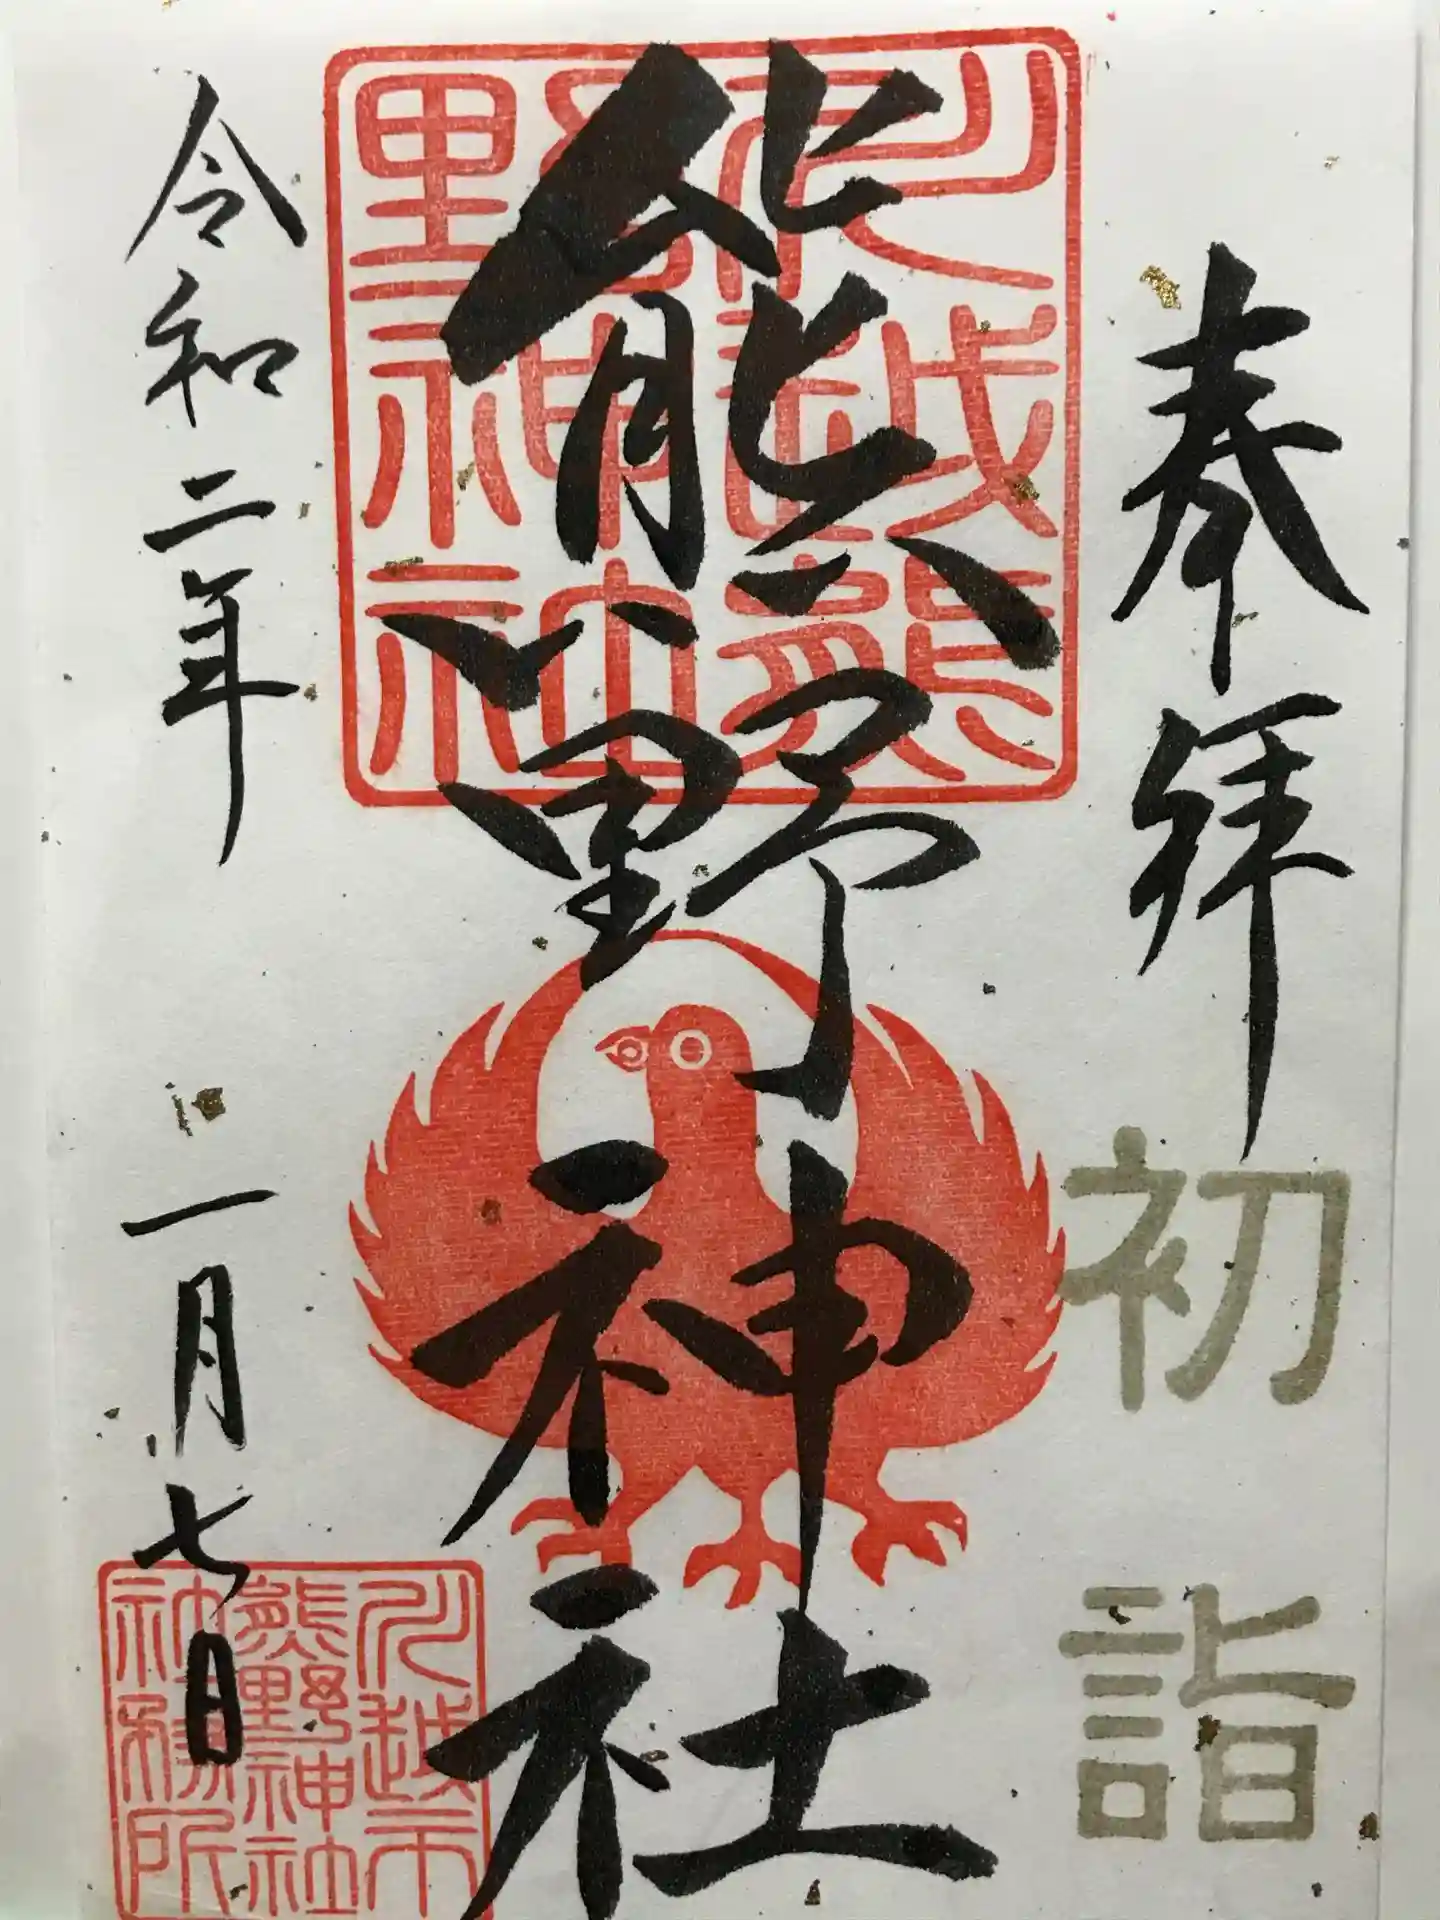 奉拝
初詣
熊野神社
令和二年 一月七日
川越熊野神社
川越市熊野神社社務所